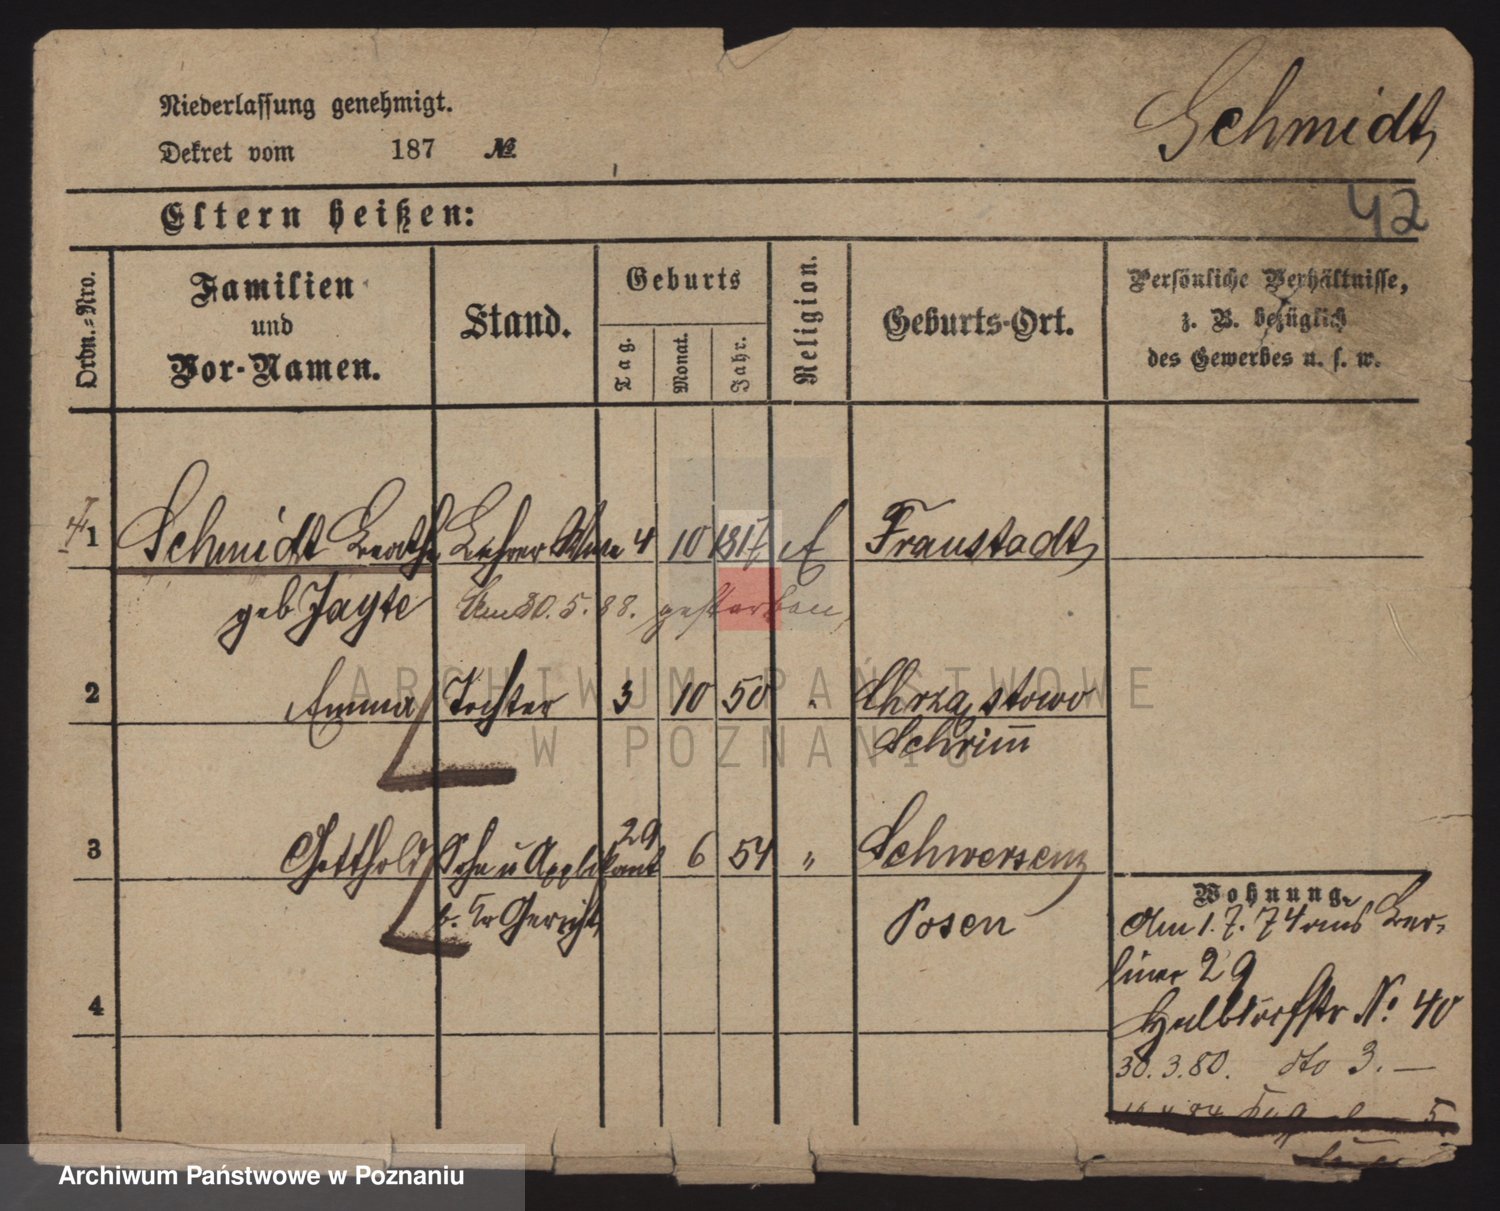 Niederlassung genehmigt.
Schmidt,
Dekret vom 187 №
42
Eltern heißen:
Ordn.=Nro.
Familien
und
Vor-Namen.
Stand.
Geburts
Tag.
Monat.
Jahr.
Religion.
Geburts-Ort.
Persönliche Verhältnisse,
z. B. bezüglich
des Gewerbes u. s. w.
1 Schmidt Beathe Lehrer Wwe 4 10 1817 Fraustadt,
geb Am 30. 5. 88. gestorben,
2 Emma Tochter 3 10 50 Chrząstowo
Schrimm
3 Gotthold Sohn u Applikant 29 6 54 " Schwersenz
b. Kr Gericht, Posen
Wohnung.
Am 1. 7. 74 aus Ber-
liner 29
Halbdorfstr No 40
4
30. 3. 80. dto 3. —
5.
ARCHIWUM PAŃSTWOWE
W POZNANIU
Archiwum Państwowe w Poznaniu